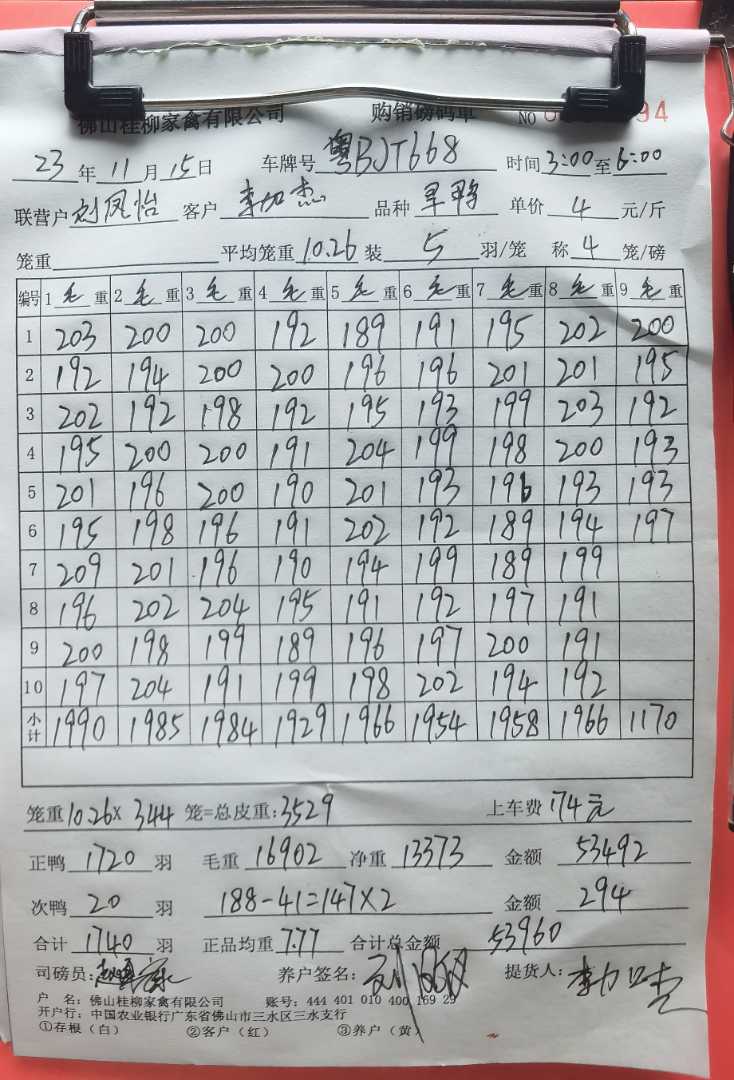 佛山桂柳家禽有限公司 购销磅码单 NO 94
23 年 11 月 15 日 车牌号 粤BJT668 时间 3:00 至 6:00
联营户 刘凤怡 客户 李加杰 品种 旱鸭 单价 4 元/斤
笼重 平均笼重 10.26 装 5 羽/笼 称 4 笼/磅
编号 1 毛 重 2 毛 重 3 毛 重 4 毛 重 5 毛 重 6 毛 重 7 毛 重 8 毛 重 9 毛 重
1 203 200 200 192 189 191 195 202 200
2 192 194 200 200 196 196 201 201 195
3 202 192 198 192 195 193 199 203 192
4 195 200 200 191 204 199 198 200 193
5 201 196 200 190 201 193 196 193 193
6 195 198 196 191 202 192 189 194 197
7 209 201 196 190 194 199 189 199
8 196 202 204 195 191 192 197 191
9 200 198 199 189 196 197 200 191
10 197 204 191 199 198 202 194 192
小计 1990 1985 1984 1929 1966 1954 1958 1966 1170
笼重 10.26× 344 笼=总皮重: 3529 上车费 174元
正鸭 1720 羽 毛重 16902 净重 13373 金额 53492
次鸭 20 羽 188-41=147×2 金额 294
合计 1740 羽 正品均重 7.77 合计总金额 53960
司磅员: 养户签名: 提货人: 李加杰
户 名: 佛山桂柳家禽有限公司 账号: 444 401 010 400 169 29
开户行: 中国农业银行广东省佛山市三水区三水支行
①存根(白) ②客户(红) ③养户(黄)